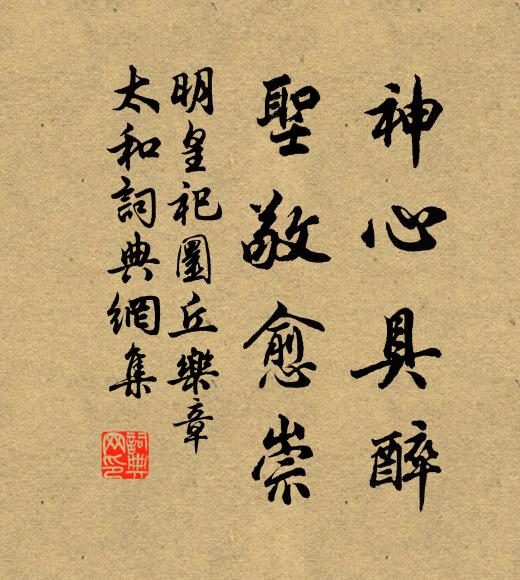 神心具醉
聖敬愈崇
明皇祀圜丘樂章
太和詞典網集
詞典
网印